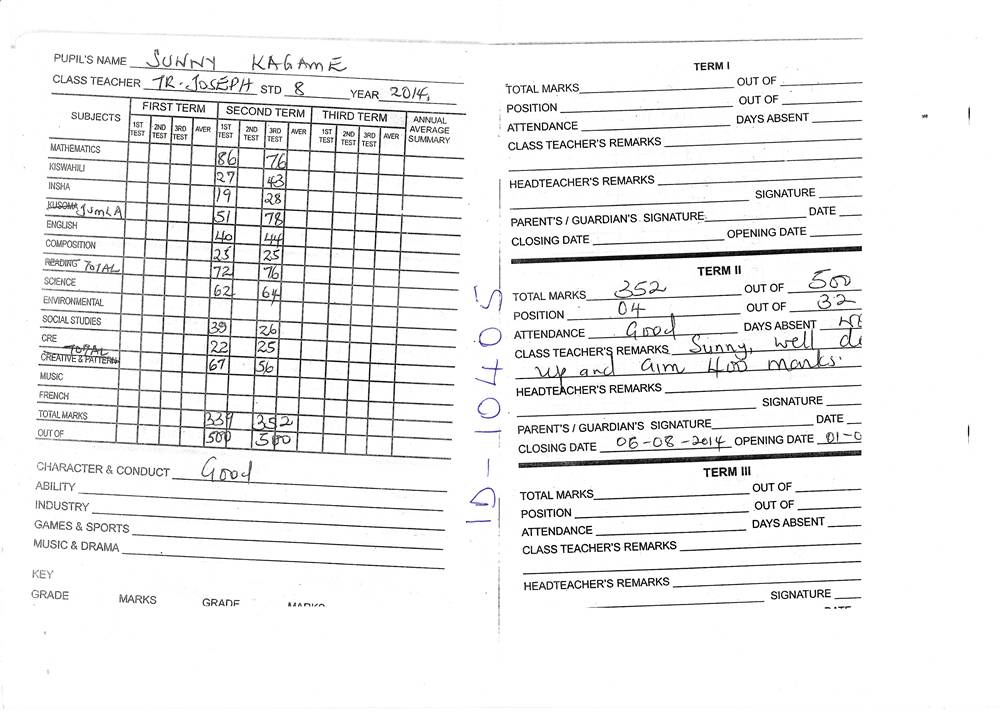 PUPIL'S NAME SUNNY KAGAME
CLASS TEACHER TR. JOSEPH STD 8 YEAR 2014.
SUBJECTS FIRST TERM SECOND TERM THIRD TERM ANNUAL AVERAGE SUMMARY
1ST TEST 2ND TEST 3RD TEST AVER 1ST TEST 2ND TEST 3RD TEST AVER 1ST TEST 2ND TEST 3RD TEST AVER
MATHEMATICS 86 76
KISWAHILI 27 43
INSHA 19 28
KUSOMA JUMLA 51 78
ENGLISH 40 44
COMPOSITION 25
READING TOTAL 72 76
SCIENCE 62 64
ENVIRONMENTAL
SOCIAL STUDIES 39 26
CRE 22 25
TOTAL
CREATIVE & PATTERN 67 56
MUSIC
FRENCH
TOTAL MARKS 339 352
OUT OF 500 500
CHARACTER & CONDUCT Good
ABILITY
INDUSTRY
GAMES & SPORTS
MUSIC & DRAMA
KEY
GRADE MARKS GRADE MARKS
ID-10405
TERM I
TOTAL MARKS OUT OF
POSITION OUT OF
ATTENDANCE DAYS ABSENT
CLASS TEACHER'S REMARKS
HEADTEACHER'S REMARKS
SIGNATURE
PARENT'S / GUARDIAN'S SIGNATURE: DATE
CLOSING DATE OPENING DATE
TERM II
TOTAL MARKS 352 OUT OF 500
POSITION 04 OUT OF 32
ATTENDANCE Good DAYS ABSENT
CLASS TEACHER'S REMARKS Sunny, well
up and aim 400 marks.
HEADTEACHER'S REMARKS
SIGNATURE
PARENT'S / GUARDIAN'S SIGNATURE DATE
CLOSING DATE 06-08-2014 OPENING DATE 01-0
TERM III
TOTAL MARKS OUT OF
POSITION OUT OF
ATTENDANCE DAYS ABSENT
CLASS TEACHER'S REMARKS
HEADTEACHER'S REMARKS
SIGNATURE